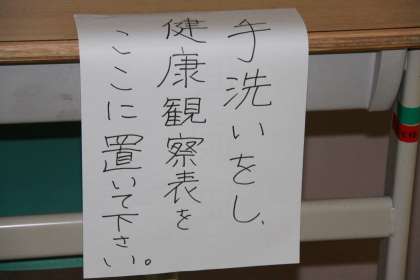 手洗いをし、
健康観察表を
ここに置いて下さい。